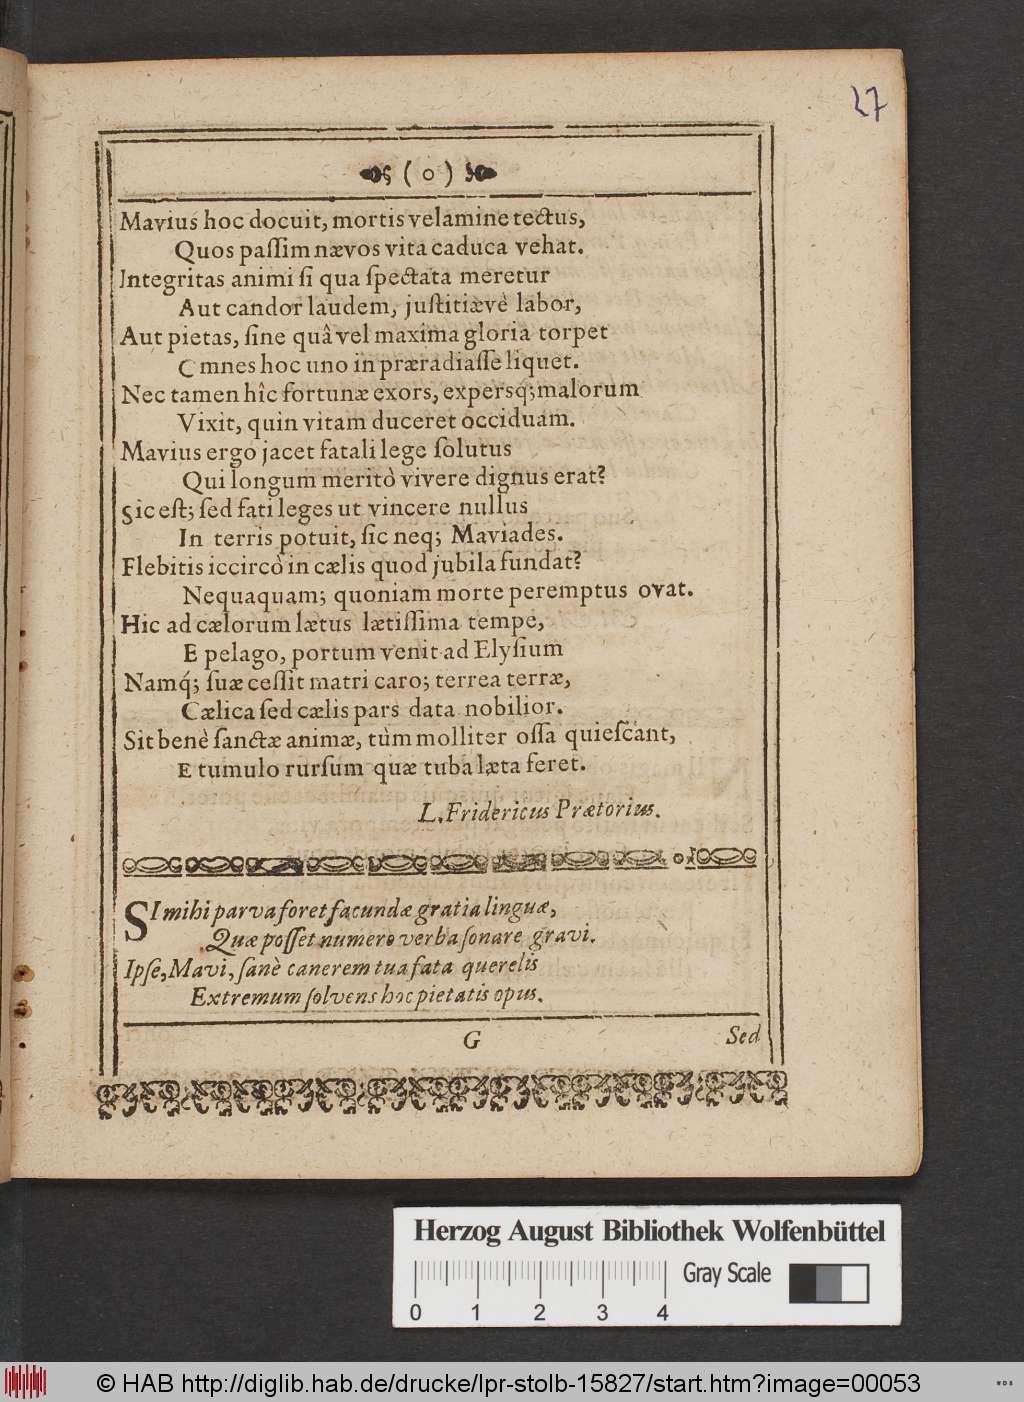 27
( o )
Mavius hoc docuit, mortis velamine tectus,
Quos paſſim nævos vita caduca vehat.
Integritas animi ſi qua ſpectata meretur
Aut candor laudem, juſtitiævè labor,
Aut pietas, ſine quâ vel maxima gloria torpet
Cmnes hoc uno in præradiaſſe liquet.
Nec tamen hîc fortunæ exors, expersq́; malorum
Vixit, quin vitam duceret occiduam.
Mavius ergo jacet fatali lege ſolutus
Qui longum meritò vivere dignus erat?
Sic eſt; ſed fati leges ut vincere nullus
In terris potuit, ſic neq; Maviades.
Flebitis iccircò in cælis quod jubila fundat?
Nequaquam; quoniam morte peremptus ovat.
Hic ad cælorum lætus lætiſſima tempe,
E pelago, portum venit ad Elyſium
Namq́; ſuæ ceſſit matri caro; terrea terræ,
Cælica ſed cælis pars data nobilior.
Sit benè ſanctæ animæ, tùm molliter oſſa quieſcant,
E tumulo rurſum quæ tuba læta feret.
L. Fridericus Prætorius.
SI mihi parva foret facundæ gratia linguæ,
Quæ poſſet numero verba ſonare gravi.
Ipſe, Mavi, ſanè canerem tua fata querelis
Extremum ſolvens hoc pietatis opus.
G Sed
Herzog August Bibliothek Wolfenbüttel
Gray Scale
0 1 2 3 4
© HAB http://diglib.hab.de/drucke/lpr-stolb-15827/start.htm?image=00053